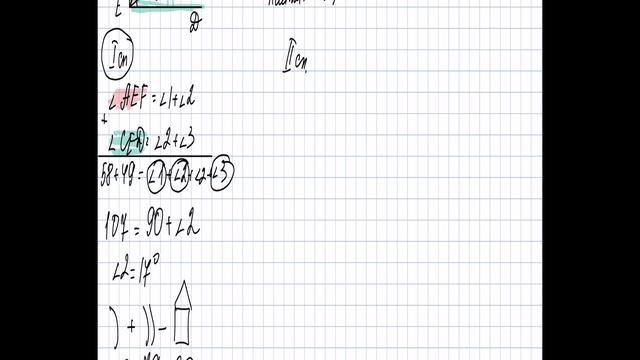 E
D
I сп
II сп.
∠AEF = ∠1 + ∠2
+
∠CED = ∠2 + ∠3
58 + 49 = ∠1 + ∠2 + ∠2 + ∠3
107 = 90 + ∠2
∠2 = 17°
) + )) -